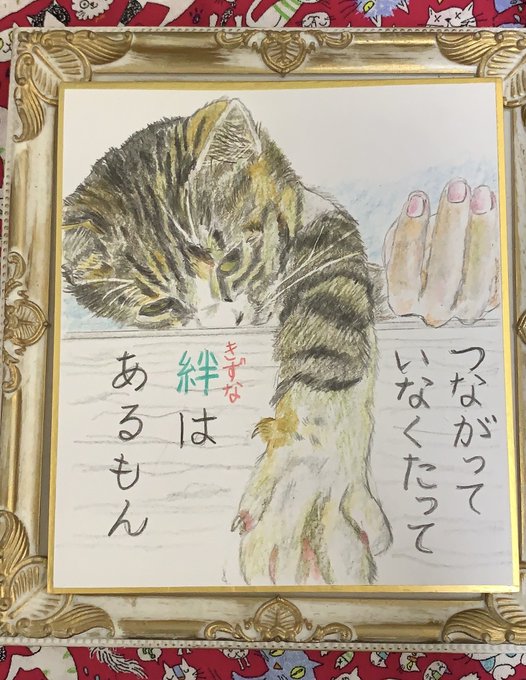 つながって
いなくたって
絆は
きずな
あるもん